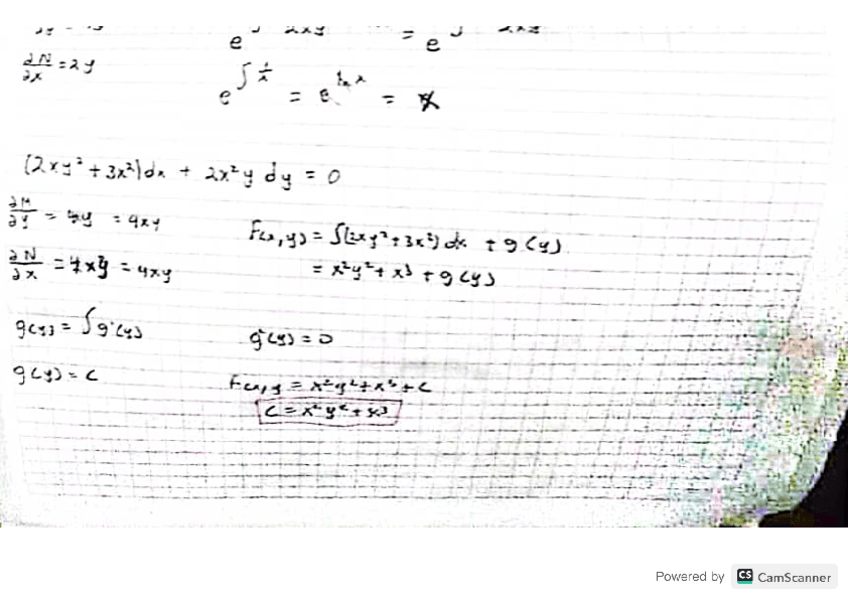 e = e
∂N/∂x = 2y
e^∫ 1/x = e^ln x = x
(2xy² + 3x²)dx + 2x²y dy = 0
∂M/∂y = 4y = 4xy
F(x,y) = ∫(2xy² + 3x²) dx + g(y)
∂N/∂x = 4xy = 4xy
= x²y² + x³ + g(y)
g(y) = ∫g'(y)
g'(y) = 0
g(y) = C
F(x,y = x²y² + x³ + C
C = x²y² + x³
Powered by CS CamScanner